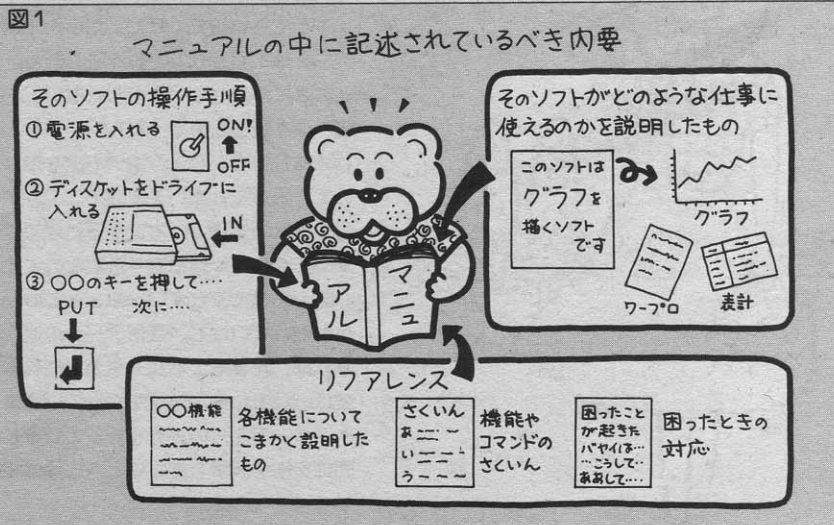 図1
マニュアルの中に記述されているべき内要
そのソフトの操作手順
① 電源を入れる
ON!
OFF
② ディスケットをドライブに
入れる
IN
③ ○○のキーを押して‥‥
PUT 次に‥‥
そのソフトがどのような仕事に
使えるのかを説明したもの
このソフトは
グラフを
描くソフト
です
グラフ
ワープロ
表計
マニュ
アル
リファレンス
○○機能
各機能について
こまかく設明した
もの
さくいん
あ
い
う
機能や
コマンドの
さくいん
困ったこと
が起きた
バヤイは…
…こうして‥
ああして‥‥
困ったときの
対応